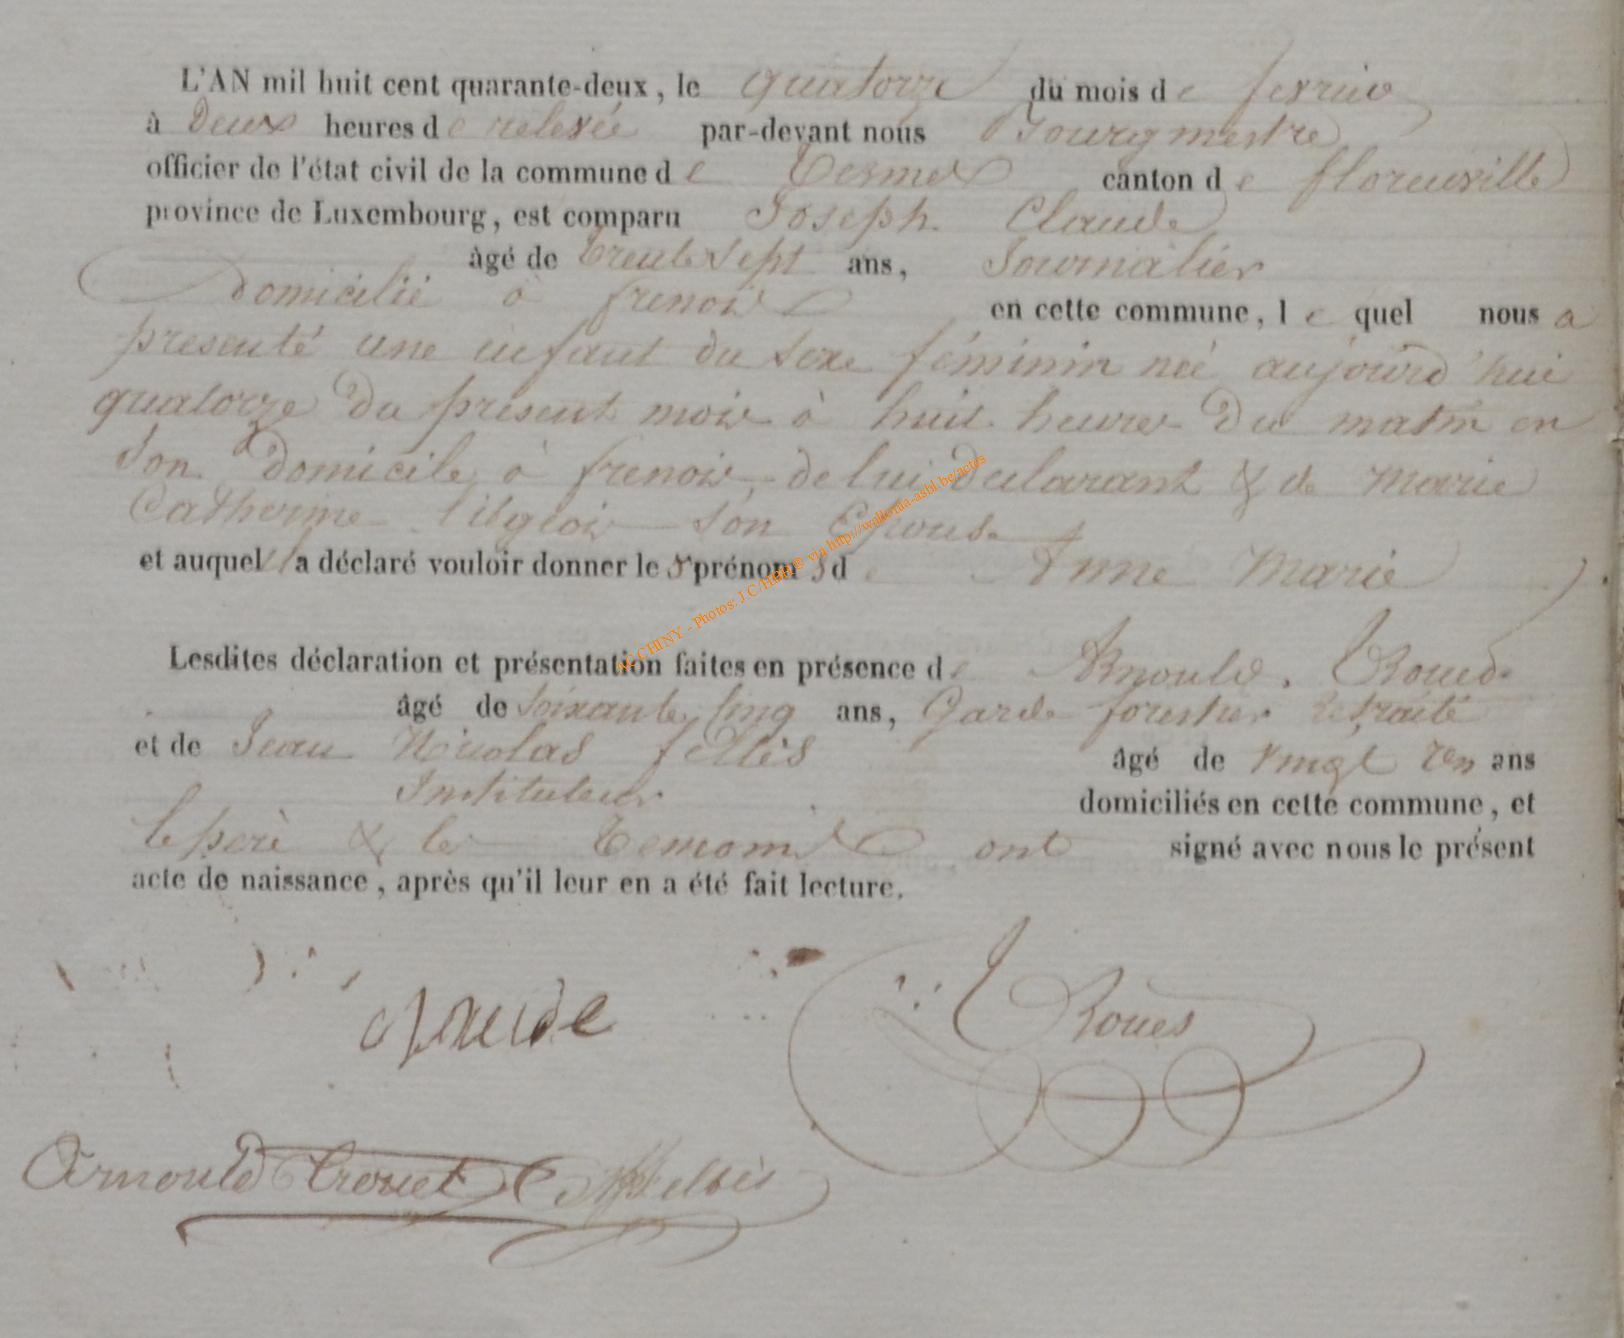 L'AN mil huit cent quarante-deux, le quatorze du mois de fevrier
à Deux heures de relevée par-devant nous Bourgmestre
officier de l'état civil de la commune de Termes canton de florenville
province de Luxembourg, est comparu Joseph Claude
âgé de trente sept ans, Journalier
Domicilié à frenois en cette commune, lequel nous a
presenté une enfant du sexe féminin née aujourd'hui
quatorze du présent mois à huit heures du matin en
son domicile à frenois, de lui declarant & de Marie
Catherine son Epouse
et auquel il a déclaré vouloir donner les prénoms de Anne Marie
Lesdites déclaration et présentation faites en présence de Arnould
âgé de soixante cinq ans, Garde forestier retraité
et de Jean Nicolas feltès âgé de vingt ans
Instituteur domiciliés en cette commune, et
le père & les temoins ont signé avec nous le présent
acte de naissance, après qu'il leur en a été fait lecture.
Claude
Arnould
ACCHINY - Photos: J C via http://wallonia-asbl.be/actes